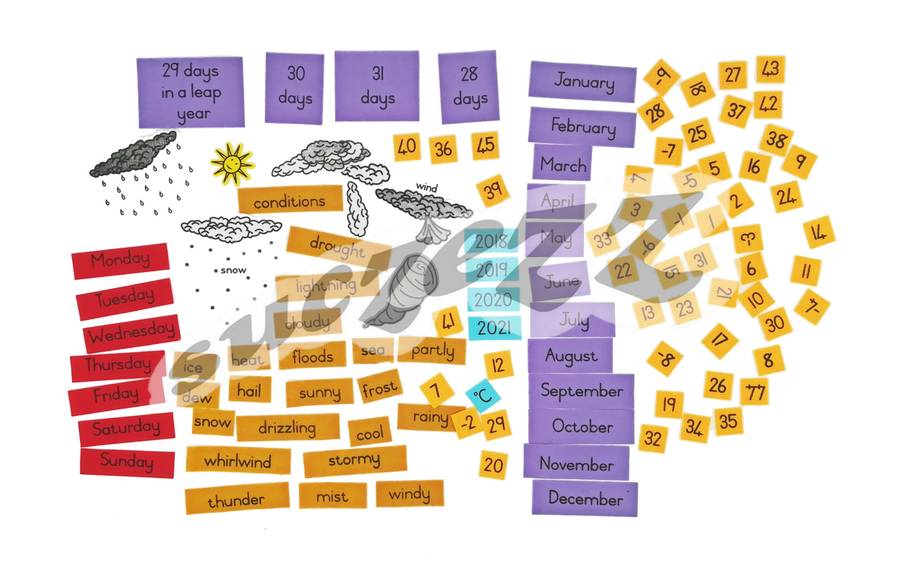 29 days
in a leap
year
30
days
31
days
28
days
January
February
March
April
May
June
July
August
September
October
November
December
40
36
45
39
conditions
wind
drought
snow
lightning
cloudy
2018
2019
2020
2021
Monday
Tuesday
Wednesday
Thursday
Friday
Saturday
Sunday
ice
heat
floods
sea
partly
dew
hail
sunny
frost
rainy
snow
drizzling
cool
whirlwind
stormy
thunder
mist
windy
41
12
7
°C
-2
29
20
-9
18
27
43
28
37
42
-7
25
38
5
16
9
-5
3
-1
1
2
24
33
22
31
14
6
11
13
23
21
10
30
17
-8
8
26
77
19
34
35
32
sucrezz